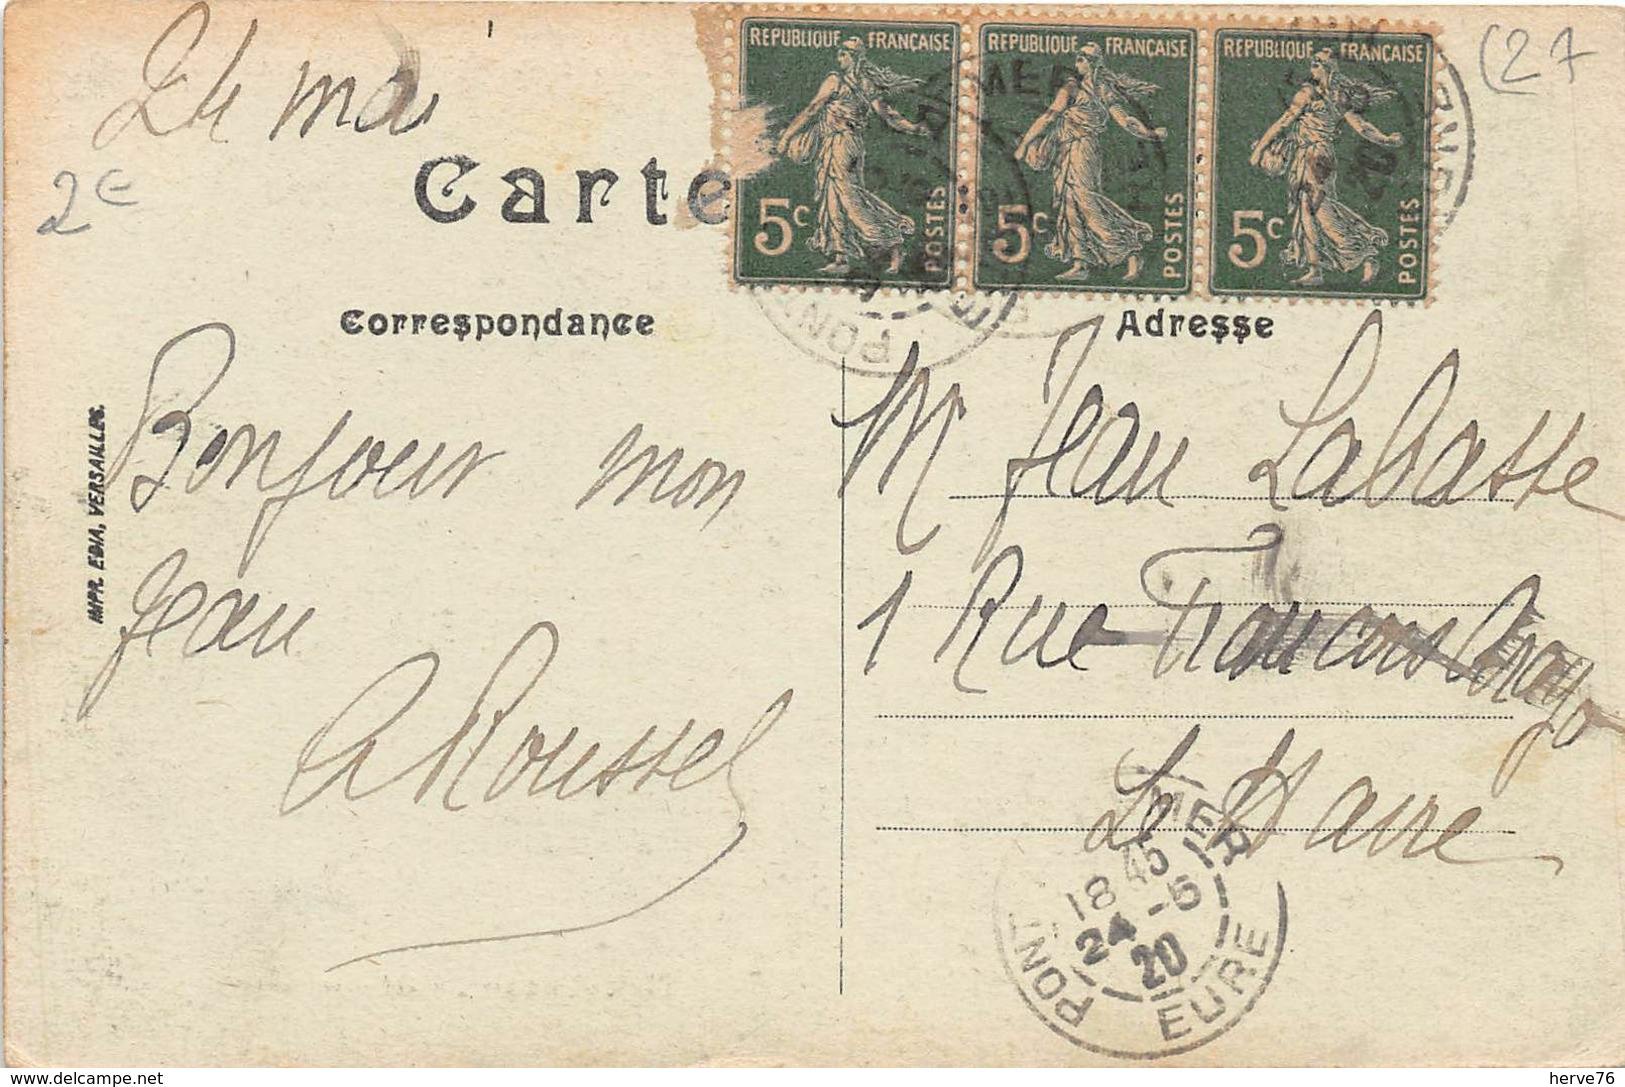 24 mai
(27
2€
Carte
REPUBLIQUE FRANÇAISE 5c POSTES
REPUBLIQUE FRANÇAISE 5c POSTES
REPUBLIQUE FRANÇAISE 5c POSTES
Correspondance
Adresse
IMPR. EDIA, VERSAILLES.
Bonjour mon
Jean
A Roussel
Mr Jean Labasse
1 Rue François Arago
Le Havre
PONT
MER
EURE
18 45
24 -5
20
delcampe.net
herve76